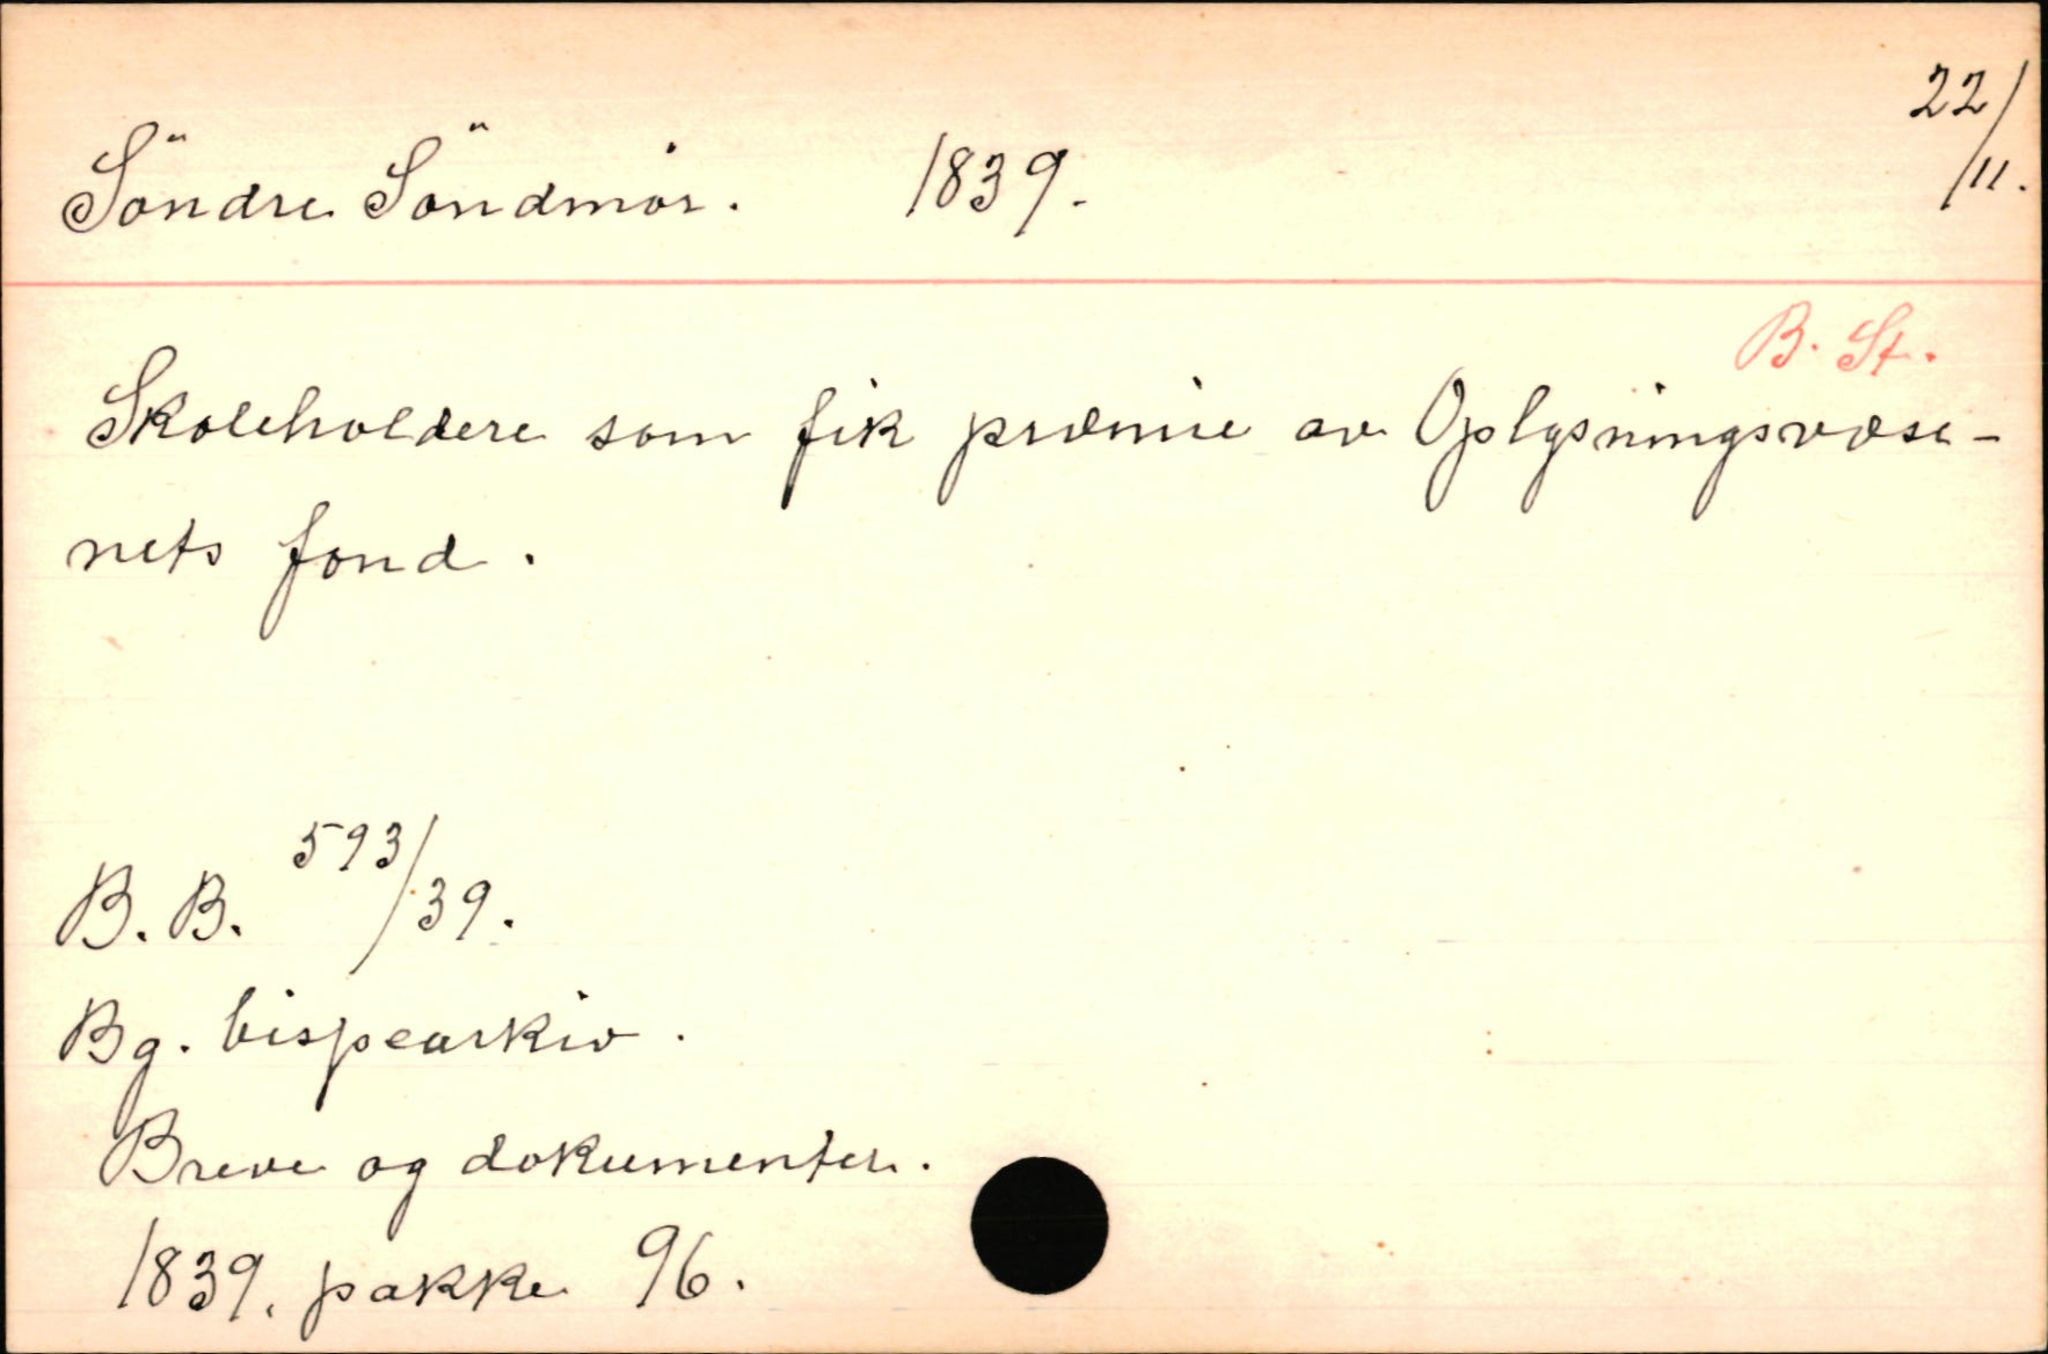 Söndre Söndmör. 1839. 22/11.
B. St.
Skoleholdere som fik præmie av Oplysningsvæse-
nets fond.
B. B. 593/39.
Bg. bispearkiv.
Breve og dokumenter.
1839. pakke 96.